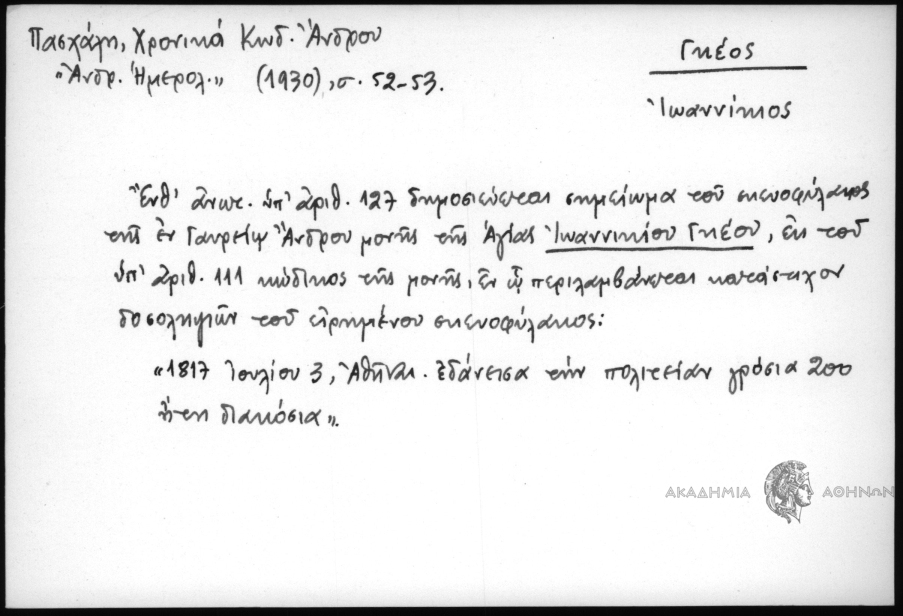 Πασχάλη, Χρονικά Κωδ. Ἄνδρου
"Ἀνδρ. Ἡμερολ." (1930), σ. 52-53.
Γκέος
Ἰωαννίκιος
Ἔνθ' ἄνωτ. ὑπ' ἀριθ. 127 δημοσιεύεται σημείωμα τοῦ σκευοφύλακος
τῆς ἐν Γαυρείῳ Ἄνδρου μονῆς τῆς Ἁγίας Ἰωαννικίου Γκέου, ἐκ τοῦ
ὑπ' ἀριθ. 111 κώδικος τῆς μονῆς, ἐν ᾧ περιλαμβάνεται κατάστιχον
δοσοληψιῶν τοῦ εἰρημένου σκευοφύλακος:
«1817 Ἰουλίου 3, Ἀθῆναι. ἐδάνεισα τὴν πολιτείαν γρόσια 200
ἤτοι διακόσια».
ΑΚΑΔΗΜΙΑ ΑΘΗΝΩΝ